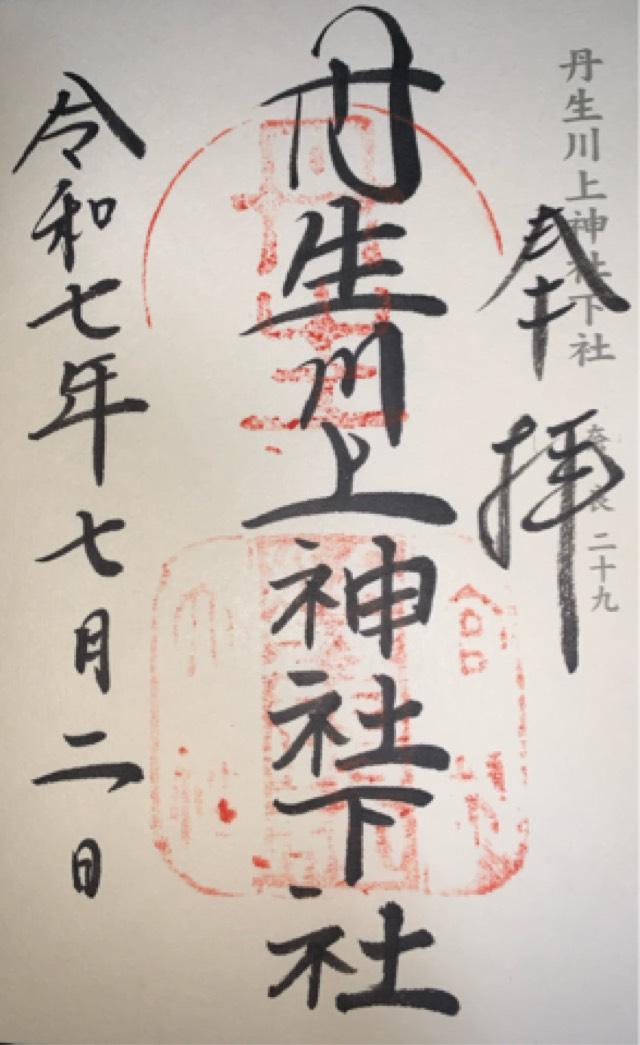 丹生川上神社下社
奈良 二十九
奉拝
丹生川上神社下社
令和七年七月二日